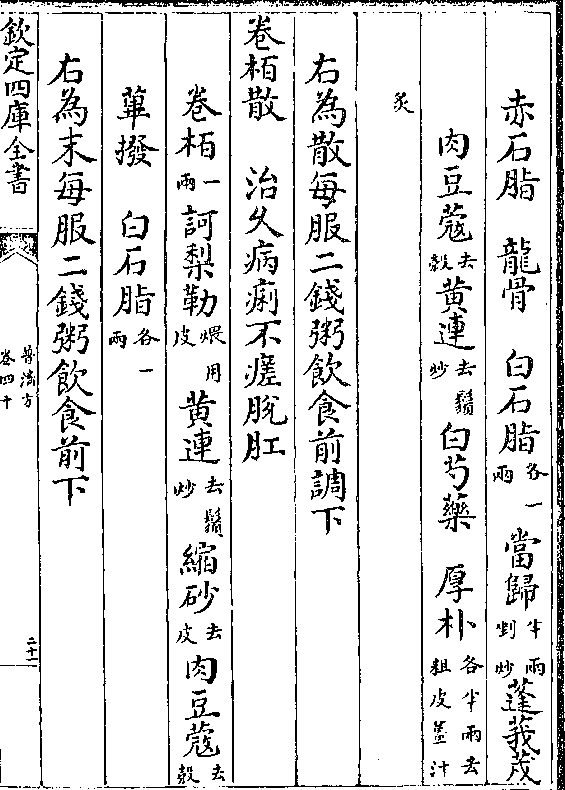 赤石脂　龍骨　白石脂各一兩　當歸半兩剉炒　蓬莪茂
肉豆蔻去殼　黄連去鬚炒　白芍藥　厚朴各半兩去粗皮薑汁
炙
右為散每服二錢粥飲食前調下
卷栢散　治久病痢不瘥脫肛
卷栢一兩　訶梨勒煨用皮　黄連去鬚炒　縮砂去皮　肉豆蔻去殼
蓽撥　白石脂各一兩
右為末每服二錢粥飲食前下
欽定四庫全書
普濟方
卷四十
二十一